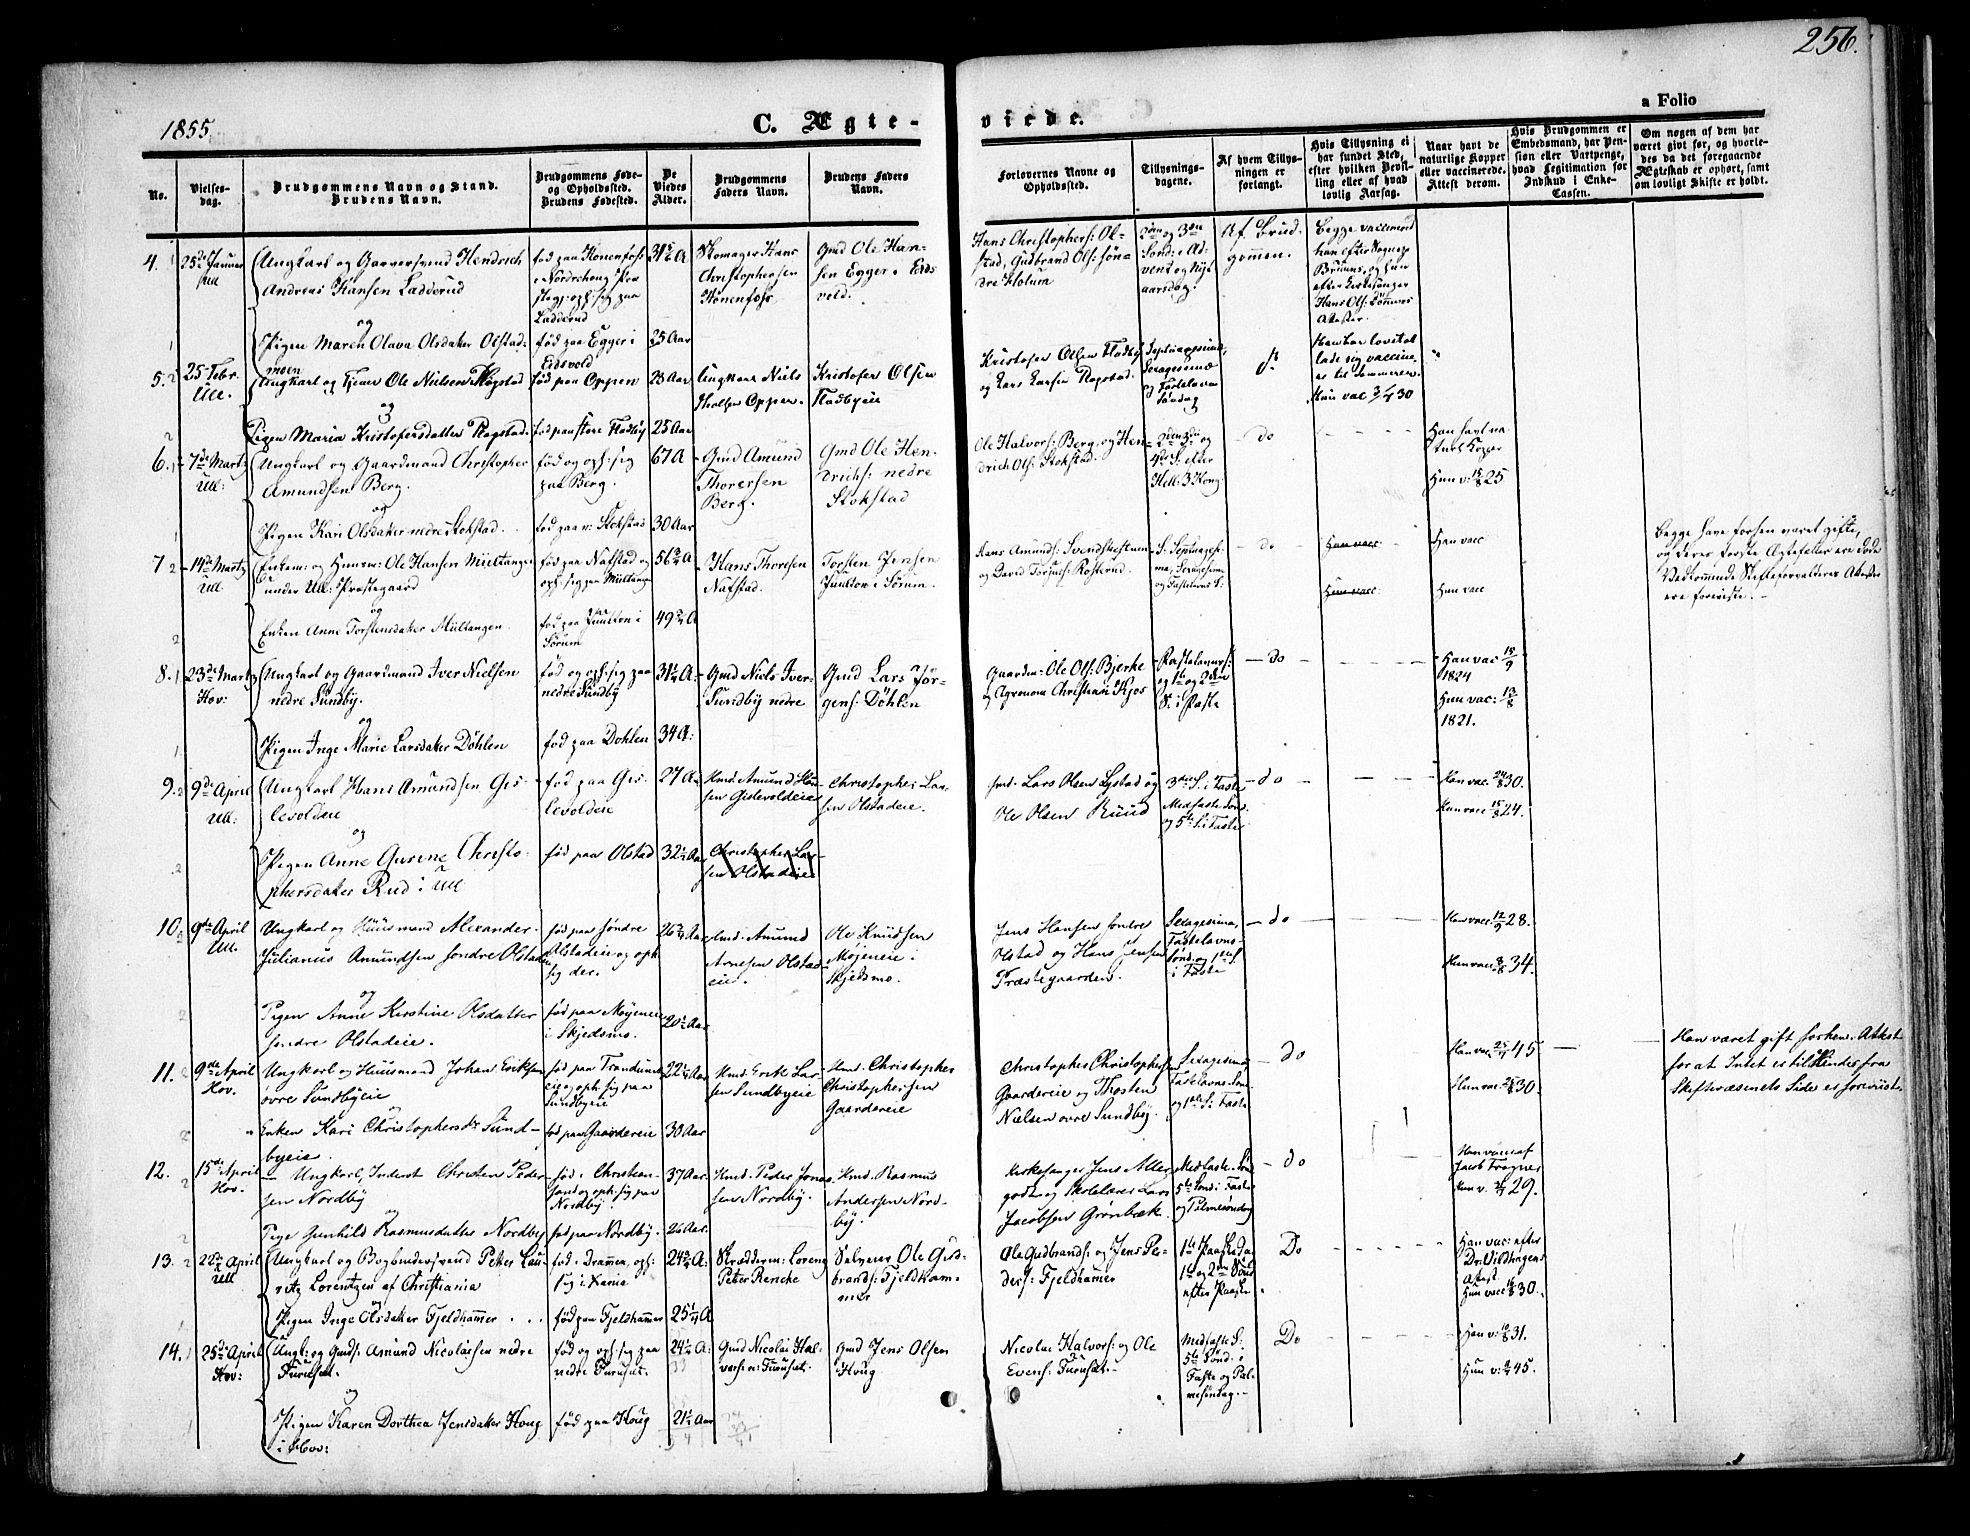 256.
1855.
C. Ægte-
viede.
a Folio
No.
Vielses-
dag.
Brudgommens Navn og Stand.
Brudens Navn.
Brudgommens Føde-
og Opholdssted.
Brudens Fødested.
De
Viedes
Alder.
Brudgommens
Faders Navn.
Brudens Faders
Navn.
Forlovernes Navne og
Opholdssted.
Tillysnings-
dagene.
Af hvem Tillys-
ningen er
forlangt.
Hvis Tillysning ei
har fundet Sted,
efter hvilken Bevil-
ling eller af hvad
lovlig Aarsag.
Naar havt de
naturlige Kopper
eller vaccinerede.
Attest derom.
Hvis Brudgommen er
Embedsmand, har Pen-
sion eller Vartpenge,
hvad Legitimation for
Indskud i Enke-
Cassen.
Om nogen af dem har
været givt før, og hvorle-
des da det foregaaende
Ægteskab er ophørt, samt
om lovligt Skifte er holdt.
4.
25de Januar
Ungkarl og Garversvend Hendrich
Andreas Hansen Ladderud
og
Pigen Maren Olava Olsdatter Olstad
fød paa Hønenfos
i Norderhoug Præ-
steg: oph: sig paa
Ladderud
fød paa Egger i
Eidsvold
31½ A
25 Aar
Skomager Hans
Christophersen
Hønenfos
Gmd Ole Han-
sen Egger i Eids
vold.
Hans Christophers: Ol-
stad, Gudbrand Ols: søn-
dre Holum
2den og 3die
Sønd: i Ad-
vent og Nyt
aarsdag.
Af Brud-
gommen.
Begge vaccinered
han efter
Bruuns, og hun
efter Kirkesanger
Hans Ols:
Attester.
5.
25 Febr.
Ull.
Ungkarl og Tjener Ole Nielsen Ragstad
og
Pigen Maria Kristofersdatter Ragstad
fød paa Oppen
fød paa store Fladby
23 Aar
25 Aar
Ungkarl Niels
Oppen.
Kristofer Olsen
Fladbyeie
Kristofer Olsen Fladby
og Lars Larsen Ragstad.
Septuagesima,
Sexagesimæ
og Fastelavns
Søndag
Han har lovet at
lade sig vaccine-
es til Sommeren.
Hun vac 3/7 30
6.
7de Marts
Ull:
Ungkarl og Gaardmand Christopher
Amundsen Berg.
og
Pigen Kari Olsdatter nedre Stokstad
fød og oph: sig
paa Berg.
fød paa n: Stokstad
67 A
30 Aar
Gmd Amund
Thoresen
Berg.
Gmd Ole Hen-
drichs: nedre
Stokstad
Ole Halvors: Berg, og Hen-
drich Ols: Stokstad.
2den 3die og
4de S: efter
Hell: 3 Kong:
do
Han havt na-
turl: Koper
Hun v: 15/8 25
7
14de Marts
Ull.
Enkem: og Huusm: Ole Hansen Mültangen
under Ull: Præstegaard
og
Enken Anne Torstensdatter Mültangen.
fød paa Nafstad og
oph: sig paa Mültangen
fød paa Juulton i
Sørum
56¾ A
49¾ A
Hans Thoresen
Nafstad.
Torsten Jensen
Juulton i Sørum.
Hans Amunds: Svendstestuen
og David Torsens: Rosterud.
S: Septuages-
ma, Sexagesima
og Fastelavns S:
do
Han vacc
Hun vacc:
Han vacc
Hun vacc
Begge have forhen været gifte,
og deres første Ægtefeller ere døde
Vedkommende Skifteforvalteres Attester
ere foreviste.
8.
23de Marts
Hov:
Ungkarl og Gaardmand Iver Nielsen
nedre Sundby.
og
Pigen Inge Marie Larsdatter Døhlen
fød og oph: sig paa
nedre Sundby
fød paa Døhlen
31¼ A:
34 A:
Gmd Niels Iver-
Sundby nedre
Gmd Lars Jør-
gens: Døhlen
Gaardm: Ole Ols: Bjerke
og Agronom Christian Kjos
Fastelavns S:
og 1ste og 2den
S: i Faste
do
Han vac 15/9
1824
Hun vac: 13/8
1821.
9.
9de April
Ull:
Ungkarl Hans Amundsen Gis-
levoldeie
og
Pigen Anne Gurine Christo-
phersdatter Rud i Ull
fød paa Gis-
levolden
fød paa Olstad
27 Aar
32½ Aar
Hmd: Amund Han-
sen Gislevoldeie
Christopher Lar-
sen Olstadeie
Christopher Lar-
sen Olstadeie.
Gmd: Lars Olsen Lystad og
Ole Olsen Ruud
3die S: i Faste
Midfaste Sønd
og 5te S: i Faste
do
Han vac: 24/8 30.
Hun vacc 15/8 24.
10.
9de April
Ull.
Ungkarl og Huusmand Alexander
Julianus Amundsen søndre Olstadeie
og
Pigen Anne Kirstine Olsdatter
søndre Olstadeie.
fød paa søndre
Olstadeie og oph:
sig der.
fød paa Møyeneie
i Skjedsmo.
26¾ Aar
20½ Aar
Hmd: Amund
Arnesen Olstad-
eie.
Ole Knudsen
Møjeneie i
Skjedsmo.
Jens Hansen søndre
Olstad og Hans Jensen
Præstegaarden.
Sexagesima,
Fastelavns-
Sønd: og 1ste S.
i Faste
do
Han vacc 12/9 28.
Hun vacc 8/8 34.
11.
9de April
Hov.
Ungkarl og Huusmand Johan Eriksen
øvre Sundbyeie
og
Enken Kari Christophersdr Sund-
byeie.
fød paa Trandum-
eie og oph: sig paa
Sundbyeie
fød paa Gaardereie
22¼ Aar
30 Aar
Hmd: Erik Lar-
sen Sundbyeie
Hmd: Christopher
Christophersen
Gaardereie
Christopher Christophersen
Gaardereie og Thosten
Nielsen øvre Sundby.
Sexagesima,
Fastelavns-Søn-
og 1ste S: i Faste
do
Han vac: 25/7 45
Hun vac: 25/8 30.
Hun været gift forhen: Attest
for at Intet er til Hinder fra
Skiftvæsenets Side er foreviist.
12.
15de April
Hov.
Ungkarl, Inderst Christen Peder-
sen Nordby
og
Pige Gunhild Rasmusdatter Nordby
fød i Christian-
sand og oph: sig paa
Nordby.
fød paa Nordby.
37 Aar.
26 Aar.
Hmd: Peder Jonas-
sen Nordby.
Hmd: Rasmus
Andersen Nord-
by.
Kirkesanger Jens Aller-
godt og Skolelærer Lars
Jacobsen Grønbæk.
Midfaste-Sønd
5te Sønd: i Faste
og Palmesøndag
do
Han vac: af
Jacob Fragner
Hun v. 3/7 29.
13.
22de April
Ull
Ungkarl og Bogbindersvend Peter Lau-
ritz Lorentzen af Christiania
og
Pigen Inge Olsdatter Fjeldhammer
fød i Drammen, oph:
sig i Xania
fød paa Fjeldhammer
24¾ A:
25¼ A
Skrædderm: Lorentz
Peter Rencke
Selveier Ole Gud-
brands: Fjeldham-
mer
Ole Gudbrands: og Jens Pe-
ders: Fjeldhamer
1ste Paaskeda
1ste og 2den Sønd
efter Paaske
Do
Han vac: efter
Dr. Vildhagens
Attest
Hun vacc 16/8 30.
14.
25de April
Hov:
Ungk: og Gmd: Amund Nicolaisen nedre
Furuset.
og
Pigen Karen Dorthea Jensdatter Houg
i Hov:
fød og oph: sig paa
nedre Furuset.
fød paa Houg
24½ A:
21¼ Aar
Gmd Nicolai Hal-
vors: n: Furuset.
Gmd Jens Olsen
Houg
Nicolai Halvors: og Ole
Evens: Furuset
Midfaste S.
5te Sønd: i
Faste og Pal-
mesøndag.
Do
Han v: 10/8 31.
Hun v: 9/7 45.